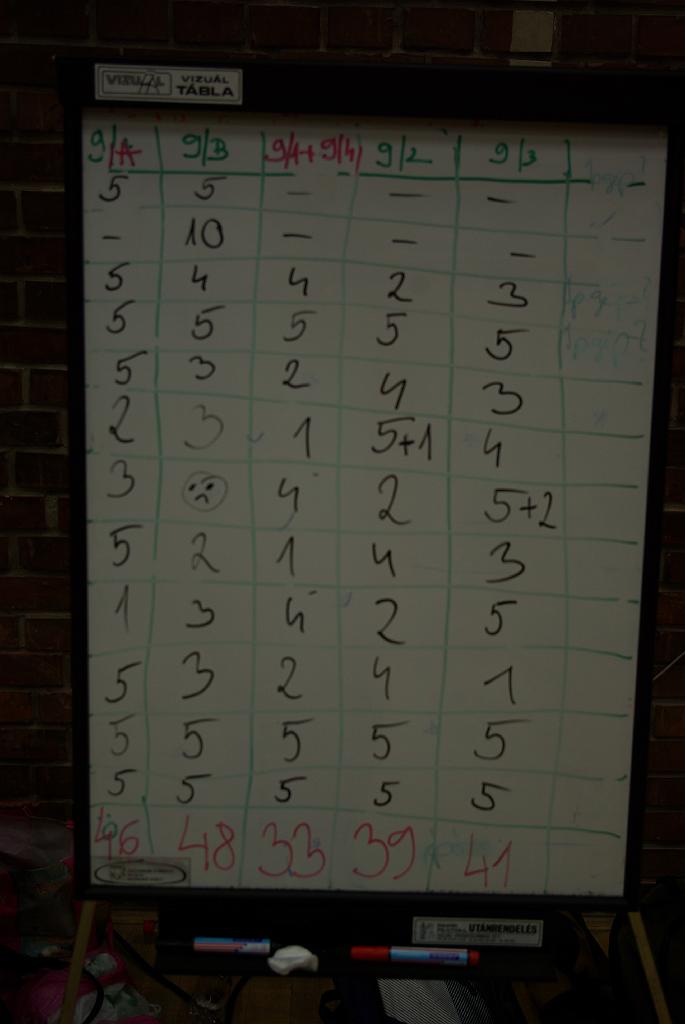 VIZUÁL VIZUÁL
TÁBLA
9/A 9/B 9/1+9/4 9/2 9/3
5 5 - - -
- 10 - - -
5 4 4 2 3
5 5 5 5 5
5 3 2 4 3
2 3 1 5+1 4
3 4 2 5+2
5 2 1 4 3
1 3 4 2 5
5 3 2 4 1
5 5 5 5 5
5 5 5 5 5
46 48 33 39 41
UTÁNRENDELÉS